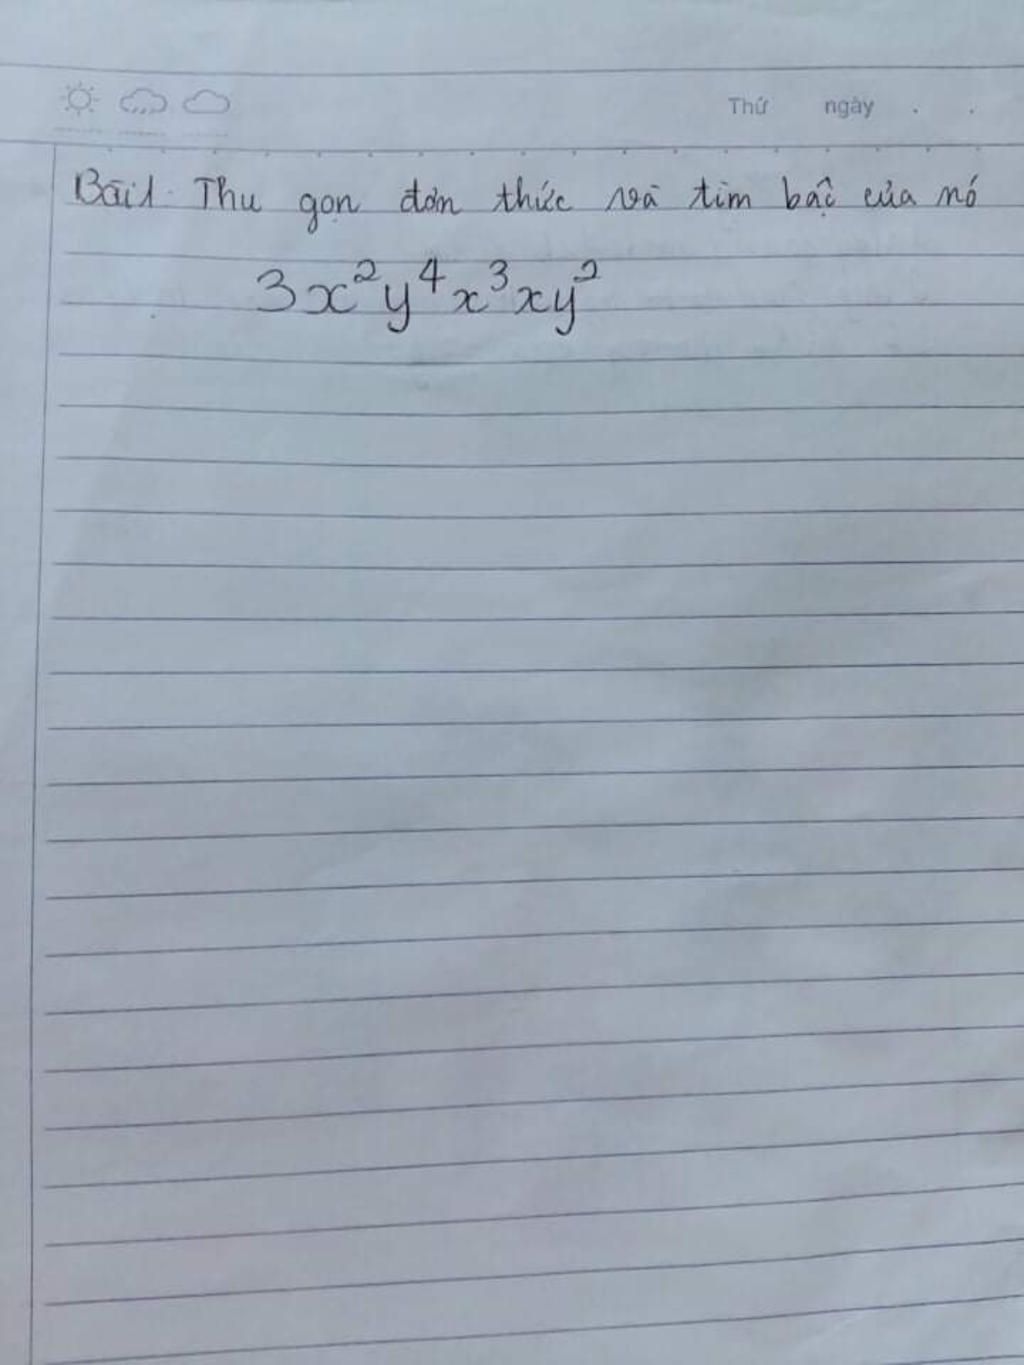 Thứ ngày . .
Bài 1. Thu gọn đơn thức và tìm bậc của nó
3x²y⁴x³xy²